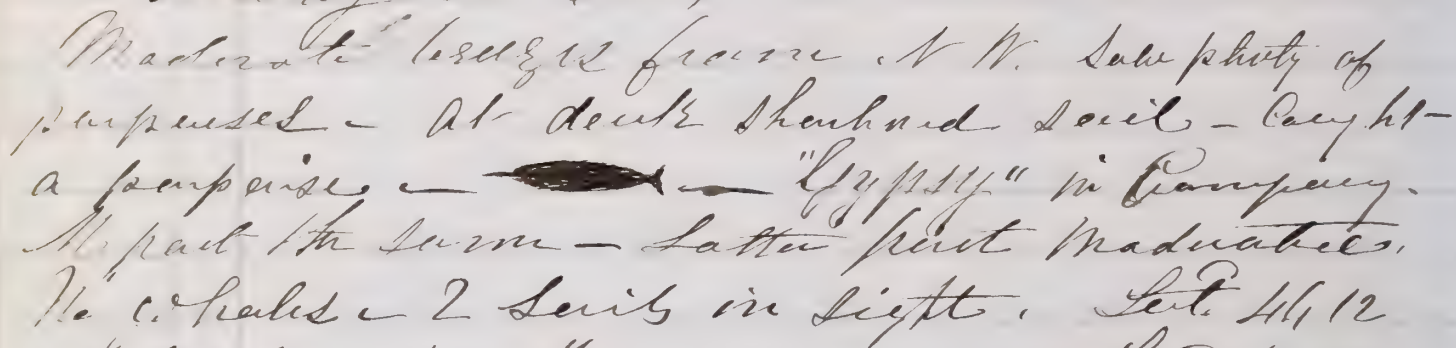 Moderate breezes from N W. Saw plenty of
porpoises - At dark shortened sail - Caught
a porpoise - - "Gypsy" in Company.
M. part the same - Latter part moderate.
No whales - 2 Sails in sight. Lat.